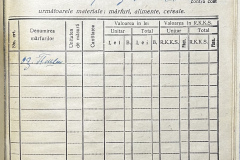 contra cost
următoarele materiale: mărfuri, alimente, cereale.
No. crt.
Denumirea mărfurilor
Unitatea de măsură
Cantitatea
Valoarea în lei
Valoarea în R.K.K.S.
Unitar Total Unitar Total
Lei B. Lei B. R.K.K.S. R.K.K.S.